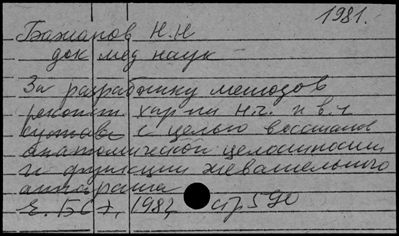 1981.
Бажанов Н.Н
док мед наук
За разработку методов
реконст. хир на н.ч. и в.ч
сустава с целью восстанов
анатомической целостности
и функции жевательного
аппарата
Е. БСЭ, 1982, стр 590